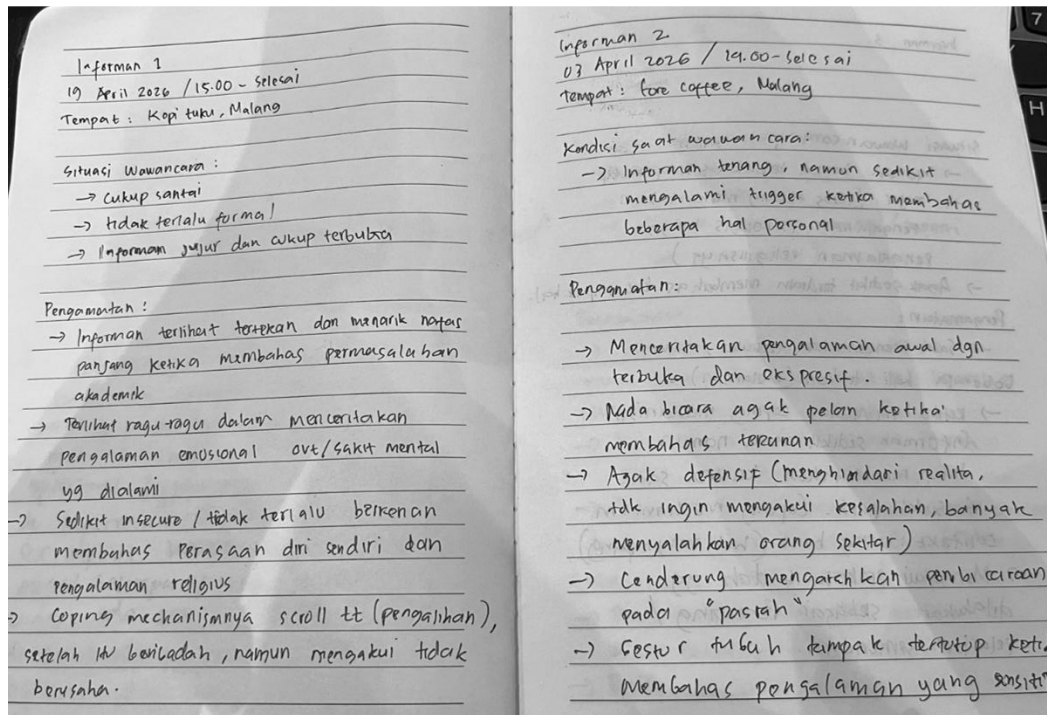 Informan 1
19 April 2026 / 15.00 - Selesai
Tempat : Kopi tuku, Malang
Situasi Wawancara :
→ Cukup santai
→ tidak terlalu formal
→ Informan jujur dan cukup terbuka
Pengamatan :
→ Informan terlihat tertekan dan menarik nafas
panjang ketika membahas permasalahan
akademik
→ Terlihat ragu-ragu dalam menceritakan
pengalaman emosional ovt/sakit mental
yg dialami
→ Sedikit insecure / tidak terlalu berkenan
membahas perasaan diri sendiri dan
pengalaman religius
→ Coping mechanismnya scroll tt (pengalihan),
setelah itu beribadah, namun mengakui tidak
berusaha.
Informan 2
03 April 2026 / 19.00 - Selesai
Tempat : fore coffee, Malang
Kondisi saat wawancara :
→ Informan tenang, namun sedikit
mengalami trigger ketika membahas
beberapa hal personal
Pengamatan :
→ Menceritakan pengalaman awal dgn
terbuka dan ekspresif.
→ Nada bicara agak pelan ketika
membahas tekanan
→ Agak defensif (menghindari realita,
tdk ingin mengakui kesalahan, banyak
menyalahkan orang sekitar)
→ Cenderung mengarahkan pembicaraan
pada "pasrah"
→ Gestur tubuh tampak tertutup keti
membahas pengalaman yang sensiti
7
H